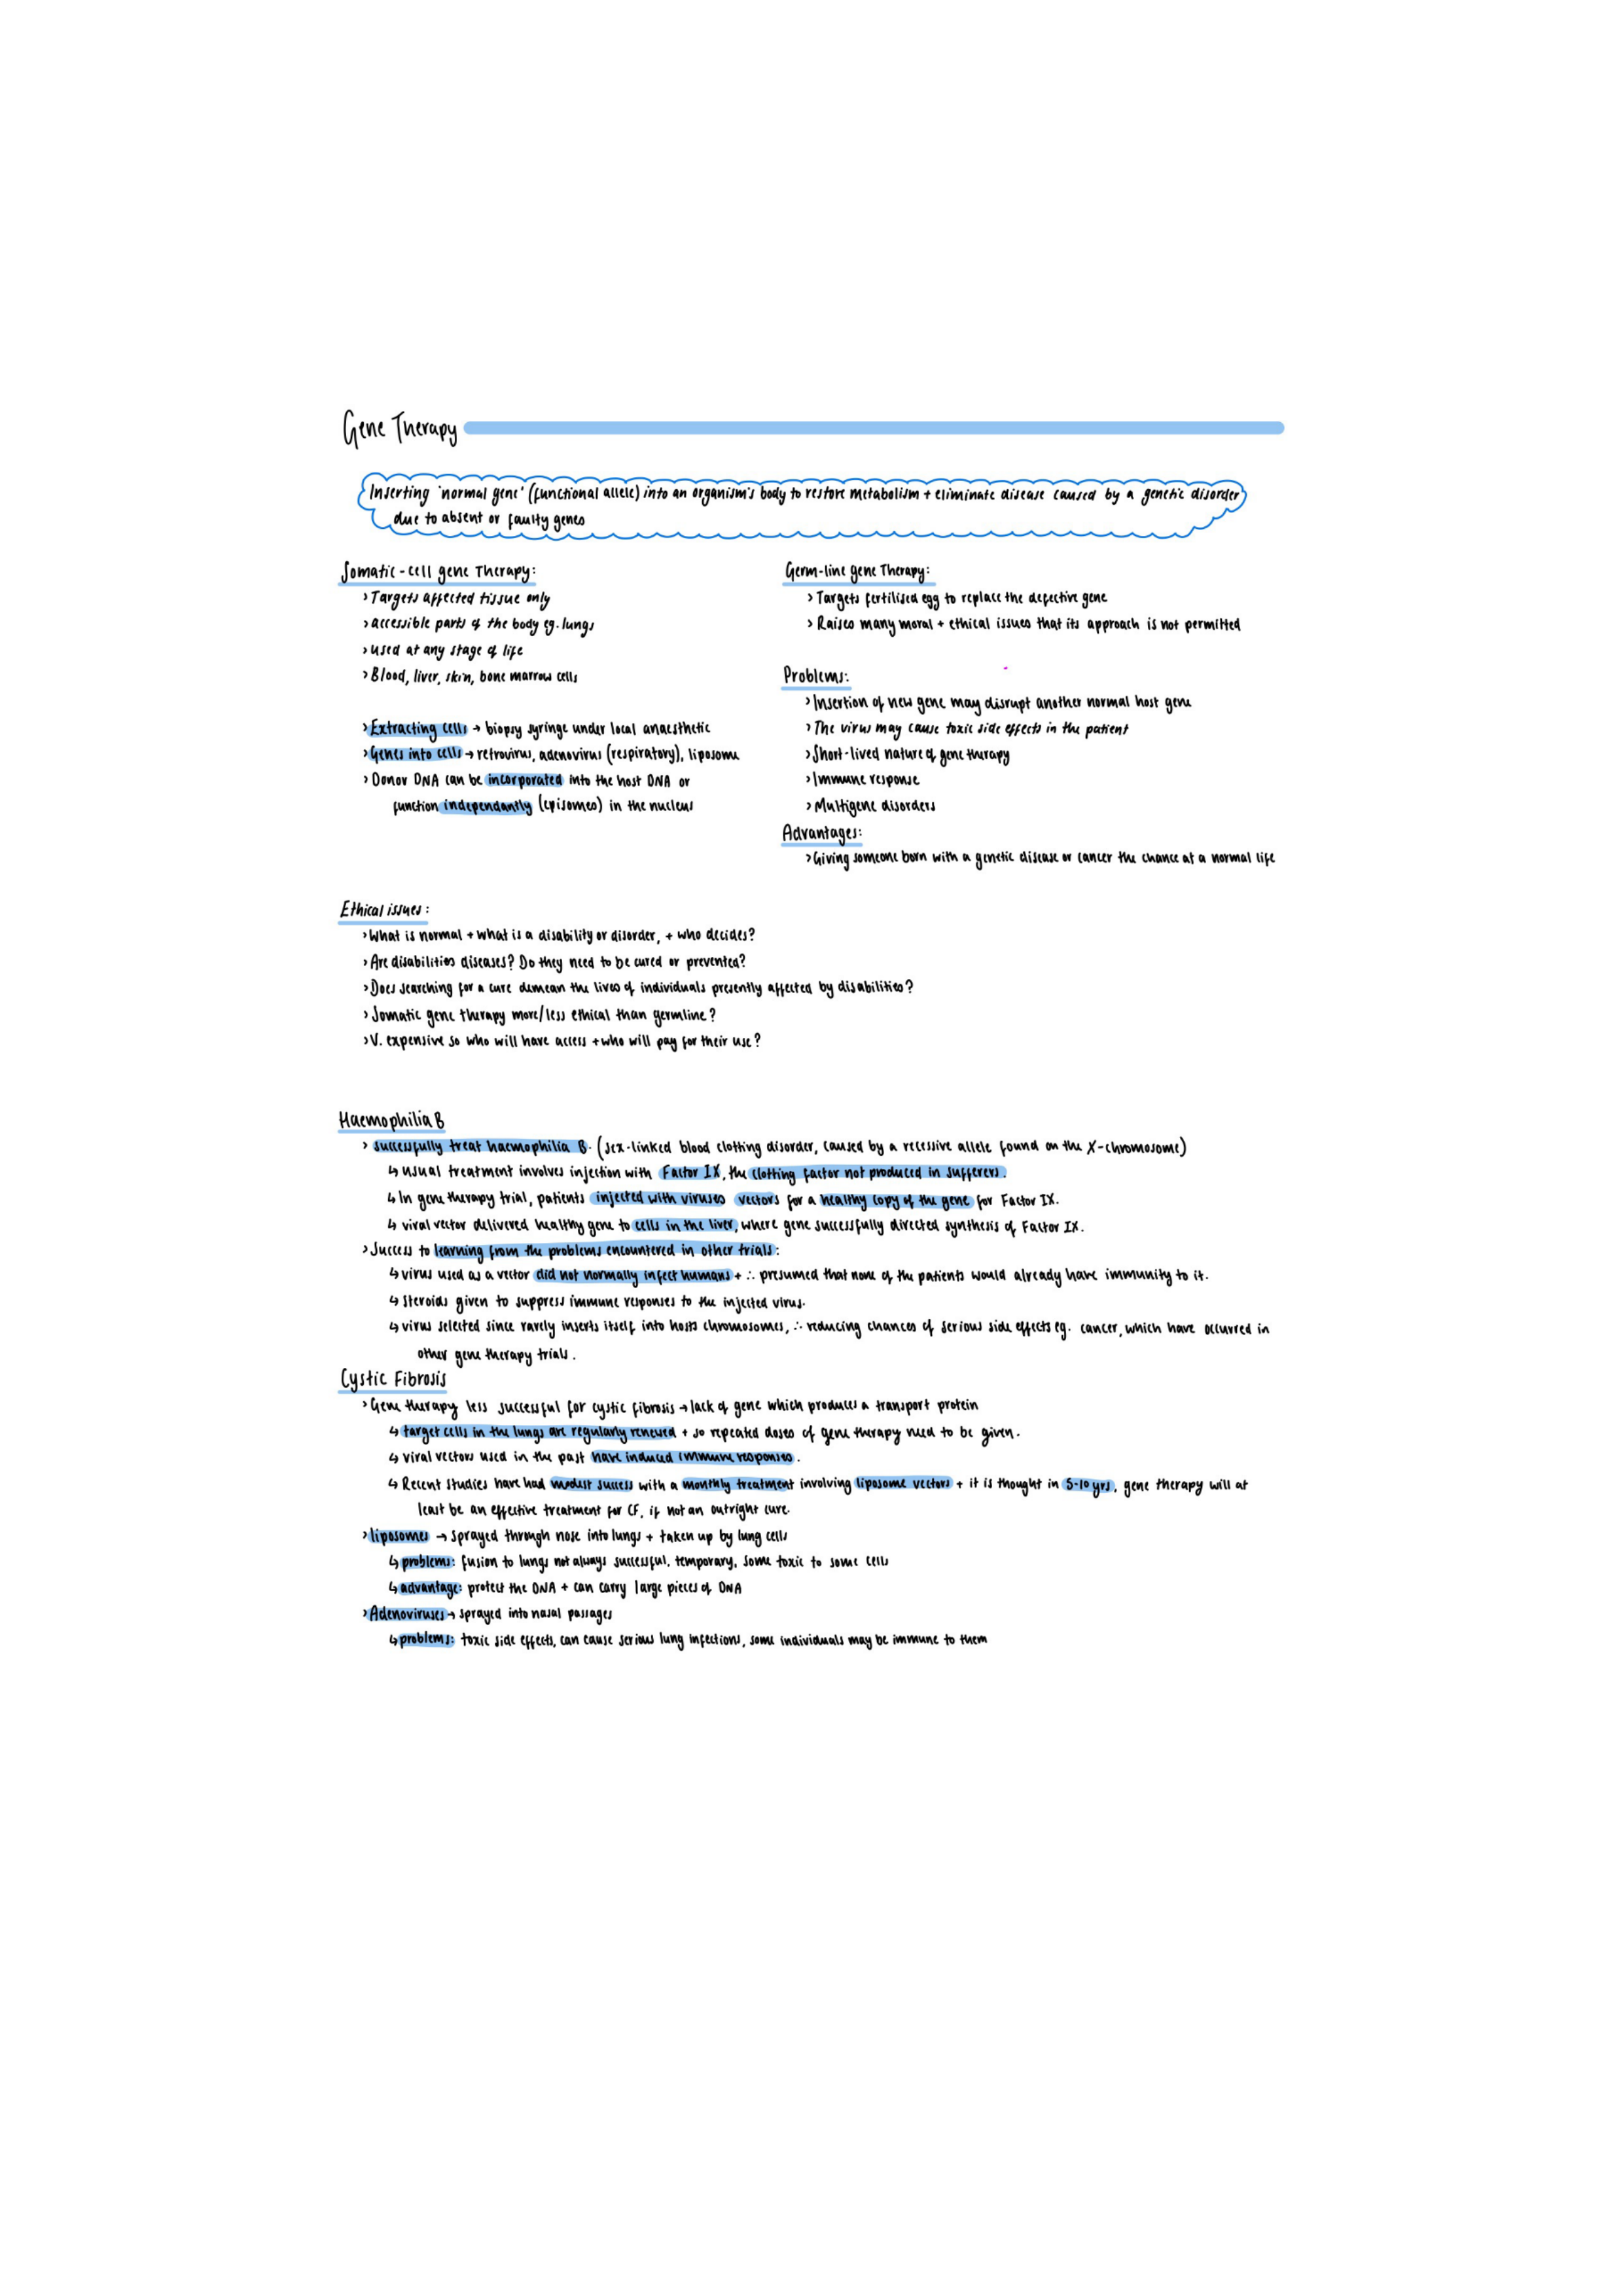 Gene Therapy
Inserting 'normal gene' (functional allele) into an organism's body to restore metabolism + eliminate disease caused by a genetic disorder
due to absent or faulty genes
Somatic-cell gene Therapy:
> Targets affected tissue only
> accessible parts of the body eg. lungs
> used at any stage of life
> Blood, liver, skin, bone marrow cells
> Extracting cells → biopsy syringe under local anaesthetic
> Genes into cells → retrovirus, adenovirus (respiratory), liposome
> Donor DNA can be incorporated into the host DNA or
function independantly (episomes) in the nucleus
Germ-line gene Therapy:
> Targets fertilised egg to replace the defective gene
> Raises many moral + ethical issues that its approach is not permitted
Problems:
> Insertion of new gene may disrupt another normal host gene
> The virus may cause toxic side effects in the patient
> Short-lived nature of gene therapy
> Immune response
> Multigene disorders
Advantages:
> Giving someone born with a genetic disease or cancer the chance at a normal life
Ethical issues:
> What is normal + what is a disability or disorder, + who decides?
> Are disabilities diseases? Do they need to be cured or prevented?
> Does searching for a cure demean the lives of individuals presently affected by disabilities?
> Somatic gene therapy more/less ethical than germline?
> V. expensive so who will have access + who will pay for their use?
Haemophilia B
> successfully treat haemophilia B. (sex-linked blood clotting disorder, caused by a recessive allele found on the X-chromosome)
↳ usual treatment involves injection with Factor IX, the clotting factor not produced in sufferers.
↳ In gene therapy trial, patients injected with viruses vectors for a healthy copy of the gene for Factor IX.
↳ viral vector delivered healthy gene to cells in the liver, where gene successfully directed synthesis of Factor IX.
> Success to learning from the problems encountered in other trials:
↳ virus used as a vector did not normally infect humans + ∴ presumed that none of the patients would already have immunity to it.
↳ Steroids given to suppress immune responses to the injected virus.
↳ virus selected since rarely inserts itself into hosts chromosomes, ∴ reducing chances of serious side effects eg. cancer, which have occurred in
other gene therapy trials.
Cystic Fibrosis
> Gene therapy less successful for cystic fibrosis → lack of gene which produces a transport protein
↳ target cells in the lungs are regularly renewed + so repeated doses of gene therapy need to be given.
↳ viral vectors used in the past have induced immune responses.
↳ Recent studies have had modest success with a monthly treatment involving liposome vectors + it is thought in 5-10 yrs, gene therapy will at
least be an effective treatment for CF, if not an outright cure.
> liposomes → sprayed through nose into lungs + taken up by lung cells
↳ problems: fusion to lungs not always successful, temporary, some toxic to some cells
↳ advantage: protect the DNA + can carry large pieces of DNA
> Adenoviruses → sprayed into nasal passages
↳ problems: toxic side effects, can cause serious lung infections, some individuals may be immune to them